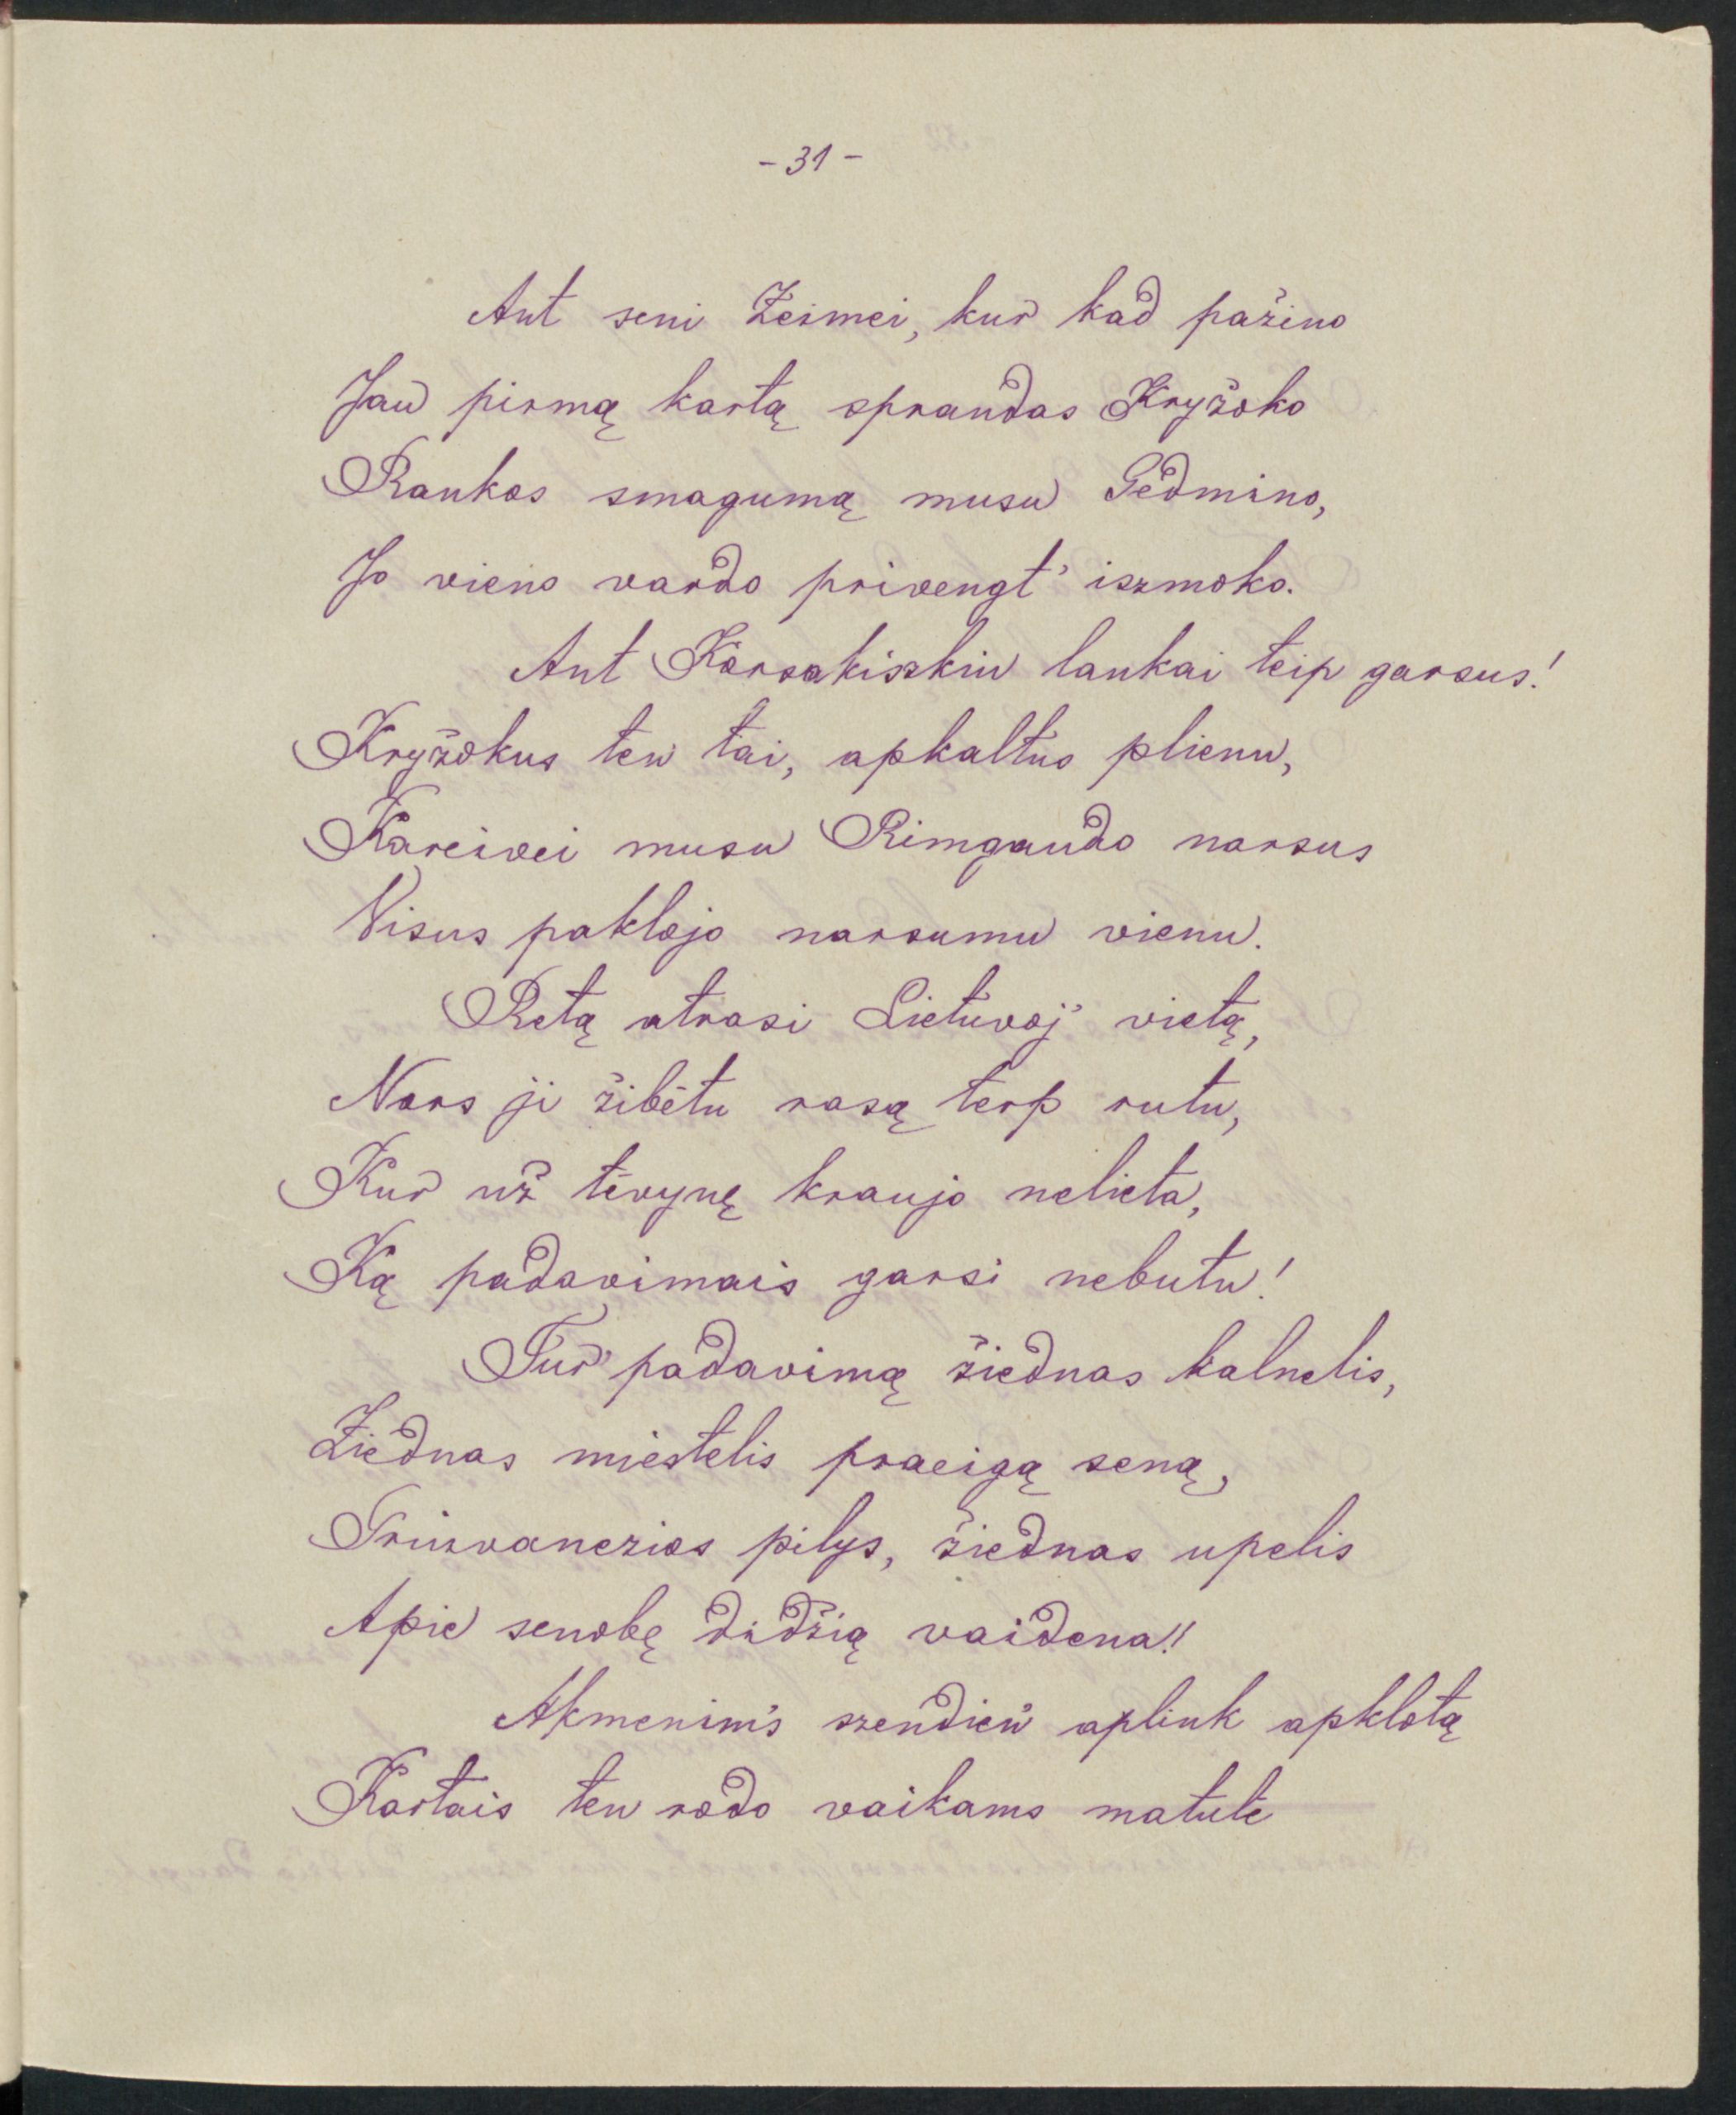 - 31 -
Ant seni Žeimei, kur kad pažino
Jau pirmą kartą sprandas Kryžoko
Rankos smagumą musu Gedmino,
Jo vieno vardo privengt' iszmoko.
Ant Korsakiszkiu laukai teip garsus!
Kryžokus ten tai, apkaltus plienu,
Kareivei musu Rimgaudo narsus
Visus paklojo narsumu vienu.
Retą atrasi Lietuvoj' vietą,
Nors ji žibėtu rasą terp rutu,
Kur už tėvynę kraujo nelieta,
Ką padavimais garsi nebutu!
Tur' padavimą žiednas kalnelis,
Žiednas miestelis praeigą seną,
Griuvanczios pilys, žiednas upelis
Apie senobę didžią vaidena!!
Akmenim's szendien aplink apklotą
Kartais ten rodo vaikams matutė